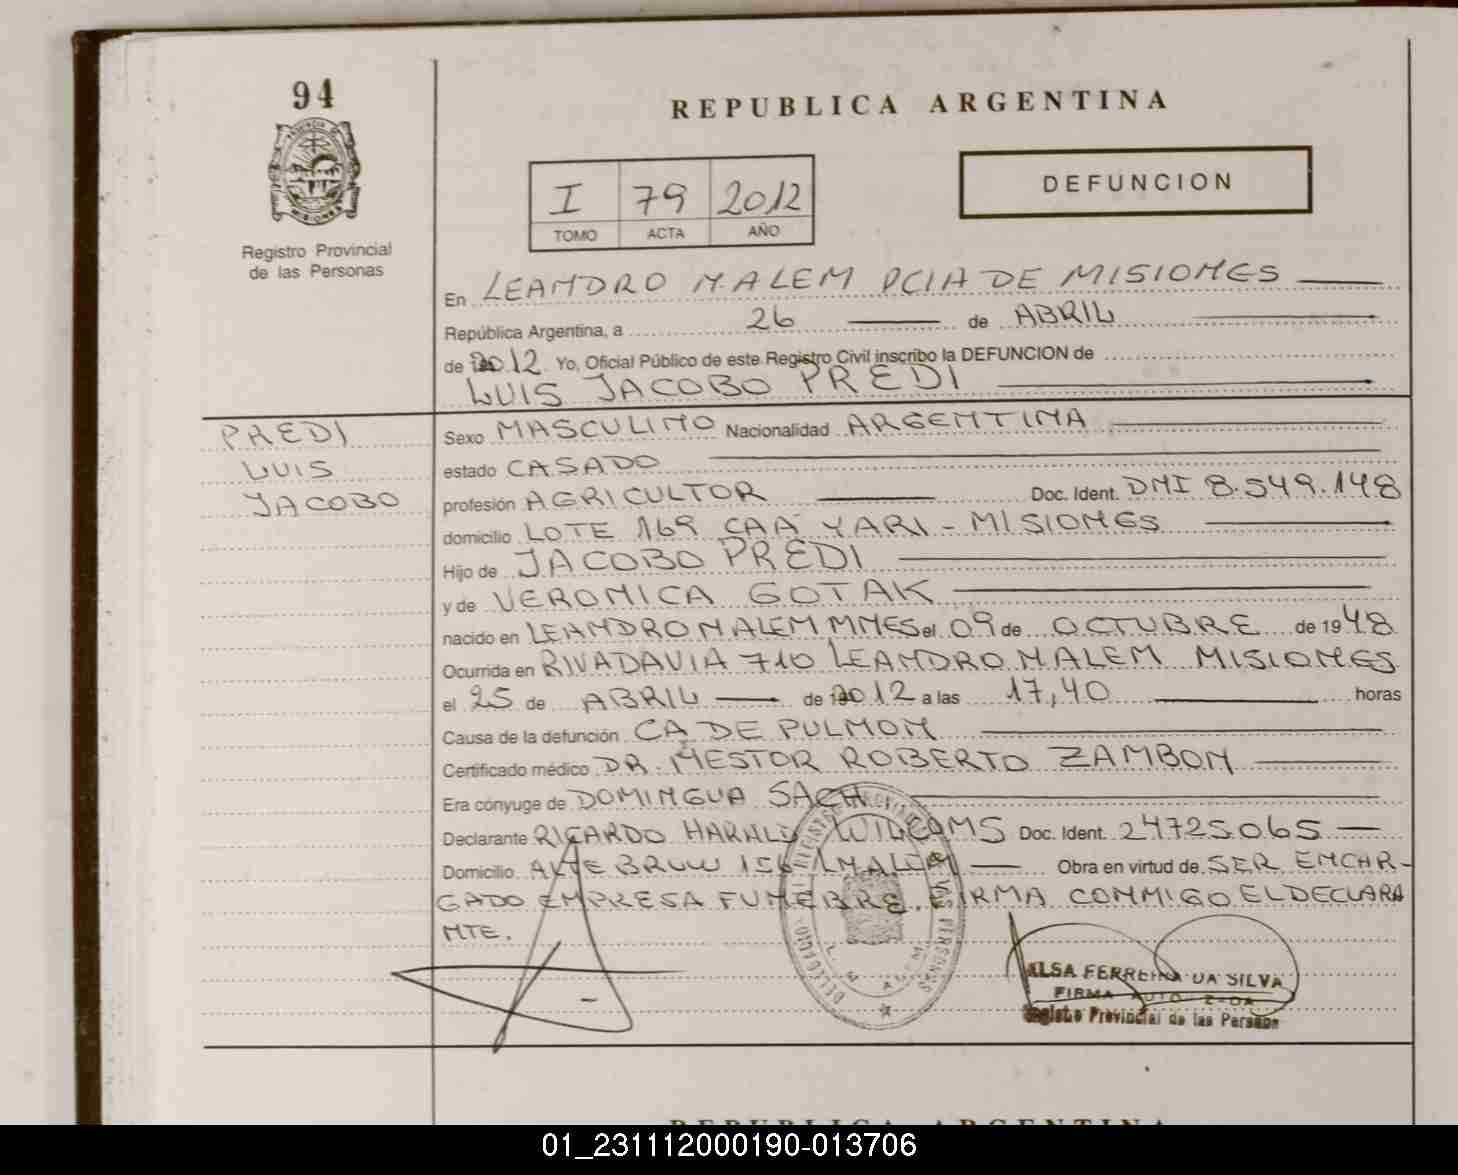 94
REPUBLICA ARGENTINA
PROVINCIA DE
MISIONES
Registro Provincial
de las Personas
I 79 2012
TOMO ACTA AÑO
DEFUNCION
En LEANDRO N. ALEM PCIA DE MISIONES
República Argentina, a 26 de ABRIL
de 2012 Yo, Oficial Público de este Registro Civil inscribo la DEFUNCION de
LUIS JACOBO PREDI
PREDI
LUIS
JACOBO
Sexo MASCULINO Nacionalidad ARGENTINA
estado CASADO
profesión AGRICULTOR Doc. Ident. DNI 8.549.148
domicilio LOTE 169 CAA YARI - MISIONES
Hijo de JACOBO PREDI
y de VERONICA GOTAK
nacido en LEANDRO N ALEM MNES el 09 de OCTUBRE de 1948
Ocurrida en RIVADAVIA 710 LEANDRO N ALEM MISIONES
el 25 de ABRIL de 2012 a las 17,40 horas
Causa de la defunción CA DE PULMON
Certificado médico DR. NESTOR ROBERTO ZAMBON
Era cónyuge de DOMINGUA SACH
Declarante RICARDO Doc. Ident. 24725065
Domicilio ALTE BROW Obra en virtud de SER ENCAR-
GADO EMPRESA FUNEBRE. FIRMA CONMIGO EL DECLARA
NTE.
FERREIRA DA SILVA
FIRMA
Registro Provincial de las Personas
REPUBLICA ARGENTINA
01_231112000190-013706